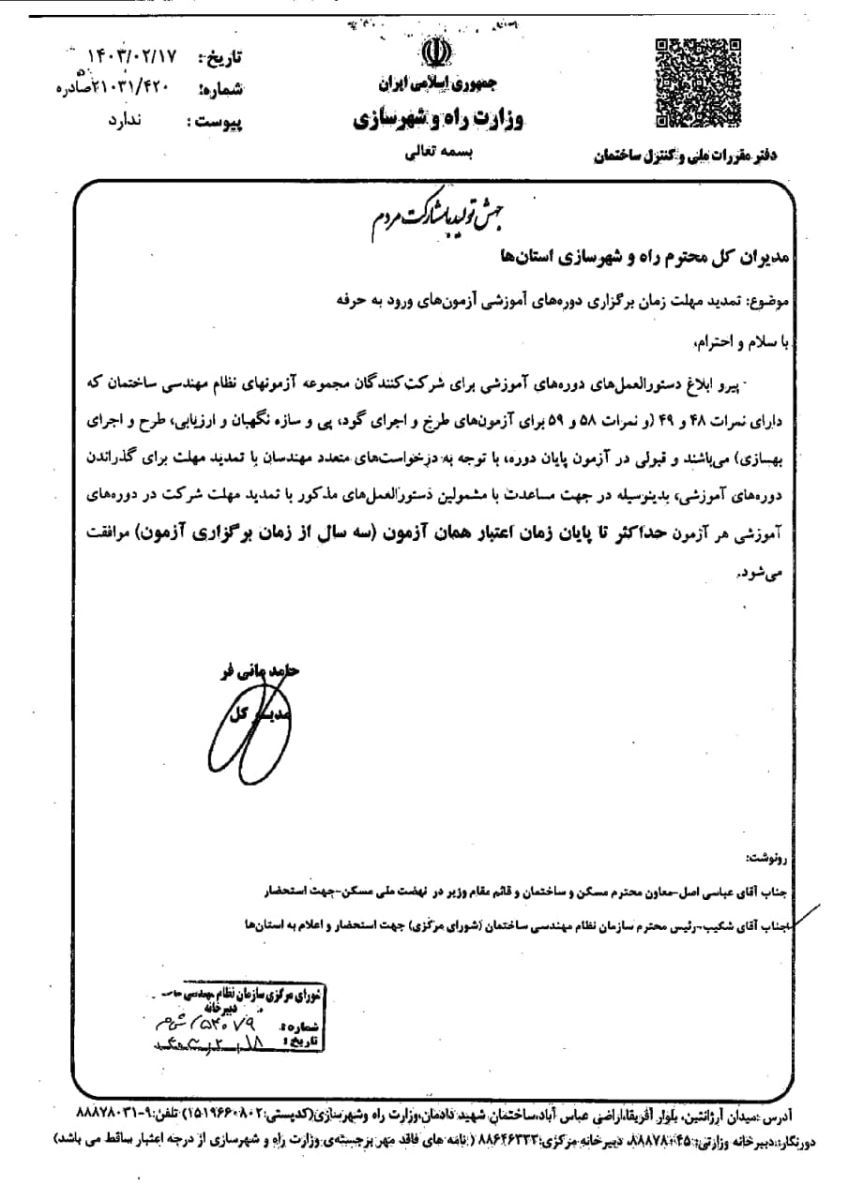 تاریخ: ۱۴۰۳/۰۲/۱۷
شماره: ۲۱۰۳۱/۴۲۰/صادره
پیوست: ندارد
جمهوری اسلامی ایران
وزارت راه و شهرسازی
بسمه تعالی
دفتر مقررات ملی و کنترل ساختمان
جهش تولید با مشارکت مردم
مدیران کل محترم راه و شهرسازی استان‌ها
موضوع: تمدید مهلت زمان برگزاری دوره‌های آموزشی آزمون‌های ورود به حرفه
با سلام و احترام،
پیرو ابلاغ دستورالعمل‌های دوره‌های آموزشی برای شرکت‌کنندگان مجموعه آزمونهای نظام مهندسی ساختمان که
دارای نمرات ۴۸ و ۴۹ (و نمرات ۵۸ و ۵۹ برای آزمون‌های طرح و اجرای گود، پی و سازه نگهبان و ارزیابی، طرح و اجرای
بهسازی) می‌باشند و قبولی در آزمون پایان دوره، با توجه به درخواست‌های متعدد مهندسان با تمدید مهلت برای گذراندن
دوره‌های آموزشی، بدینوسیله در جهت مساعدت با مشمولین دستورالعمل‌های مذکور با تمدید مهلت شرکت در دوره‌های
آموزشی هر آزمون حداکثر تا پایان زمان اعتبار همان آزمون (سه سال از زمان برگزاری آزمون) موافقت
می‌شود.
حامد مانی فر
مدیر کل
رونوشت:
جناب آقای عباسی اصل-معاون محترم مسکن و ساختمان و قائم مقام وزیر در نهضت ملی مسکن-جهت استحضار
جناب آقای شکیب-رئیس محترم سازمان نظام مهندسی ساختمان (شورای مرکزی) جهت استحضار و اعلام به استان‌ها
شورای مرکزی سازمان نظام مهندسی
دبیرخانه
شماره:
تاریخ:
آدرس :میدان آرژانتین، بلوار آفریقا،اراضی عباس آباد،ساختمان شهید دادمان،وزارت راه وشهرسازی(کدپستی:۱۵۱۹۶۶۰۸۰۲) تلفن:۹-۸۸۸۷۸۰۳۱
دورنگار:دبیرخانه وزارتی:۸۸۸۷۸۰۴۵، دبیرخانه مرکزی:۸۸۶۴۶۳۳۲ (نامه های فاقد مهر برجسته‌ی وزارت راه و شهرسازی از درجه اعتبار ساقط می باشد)